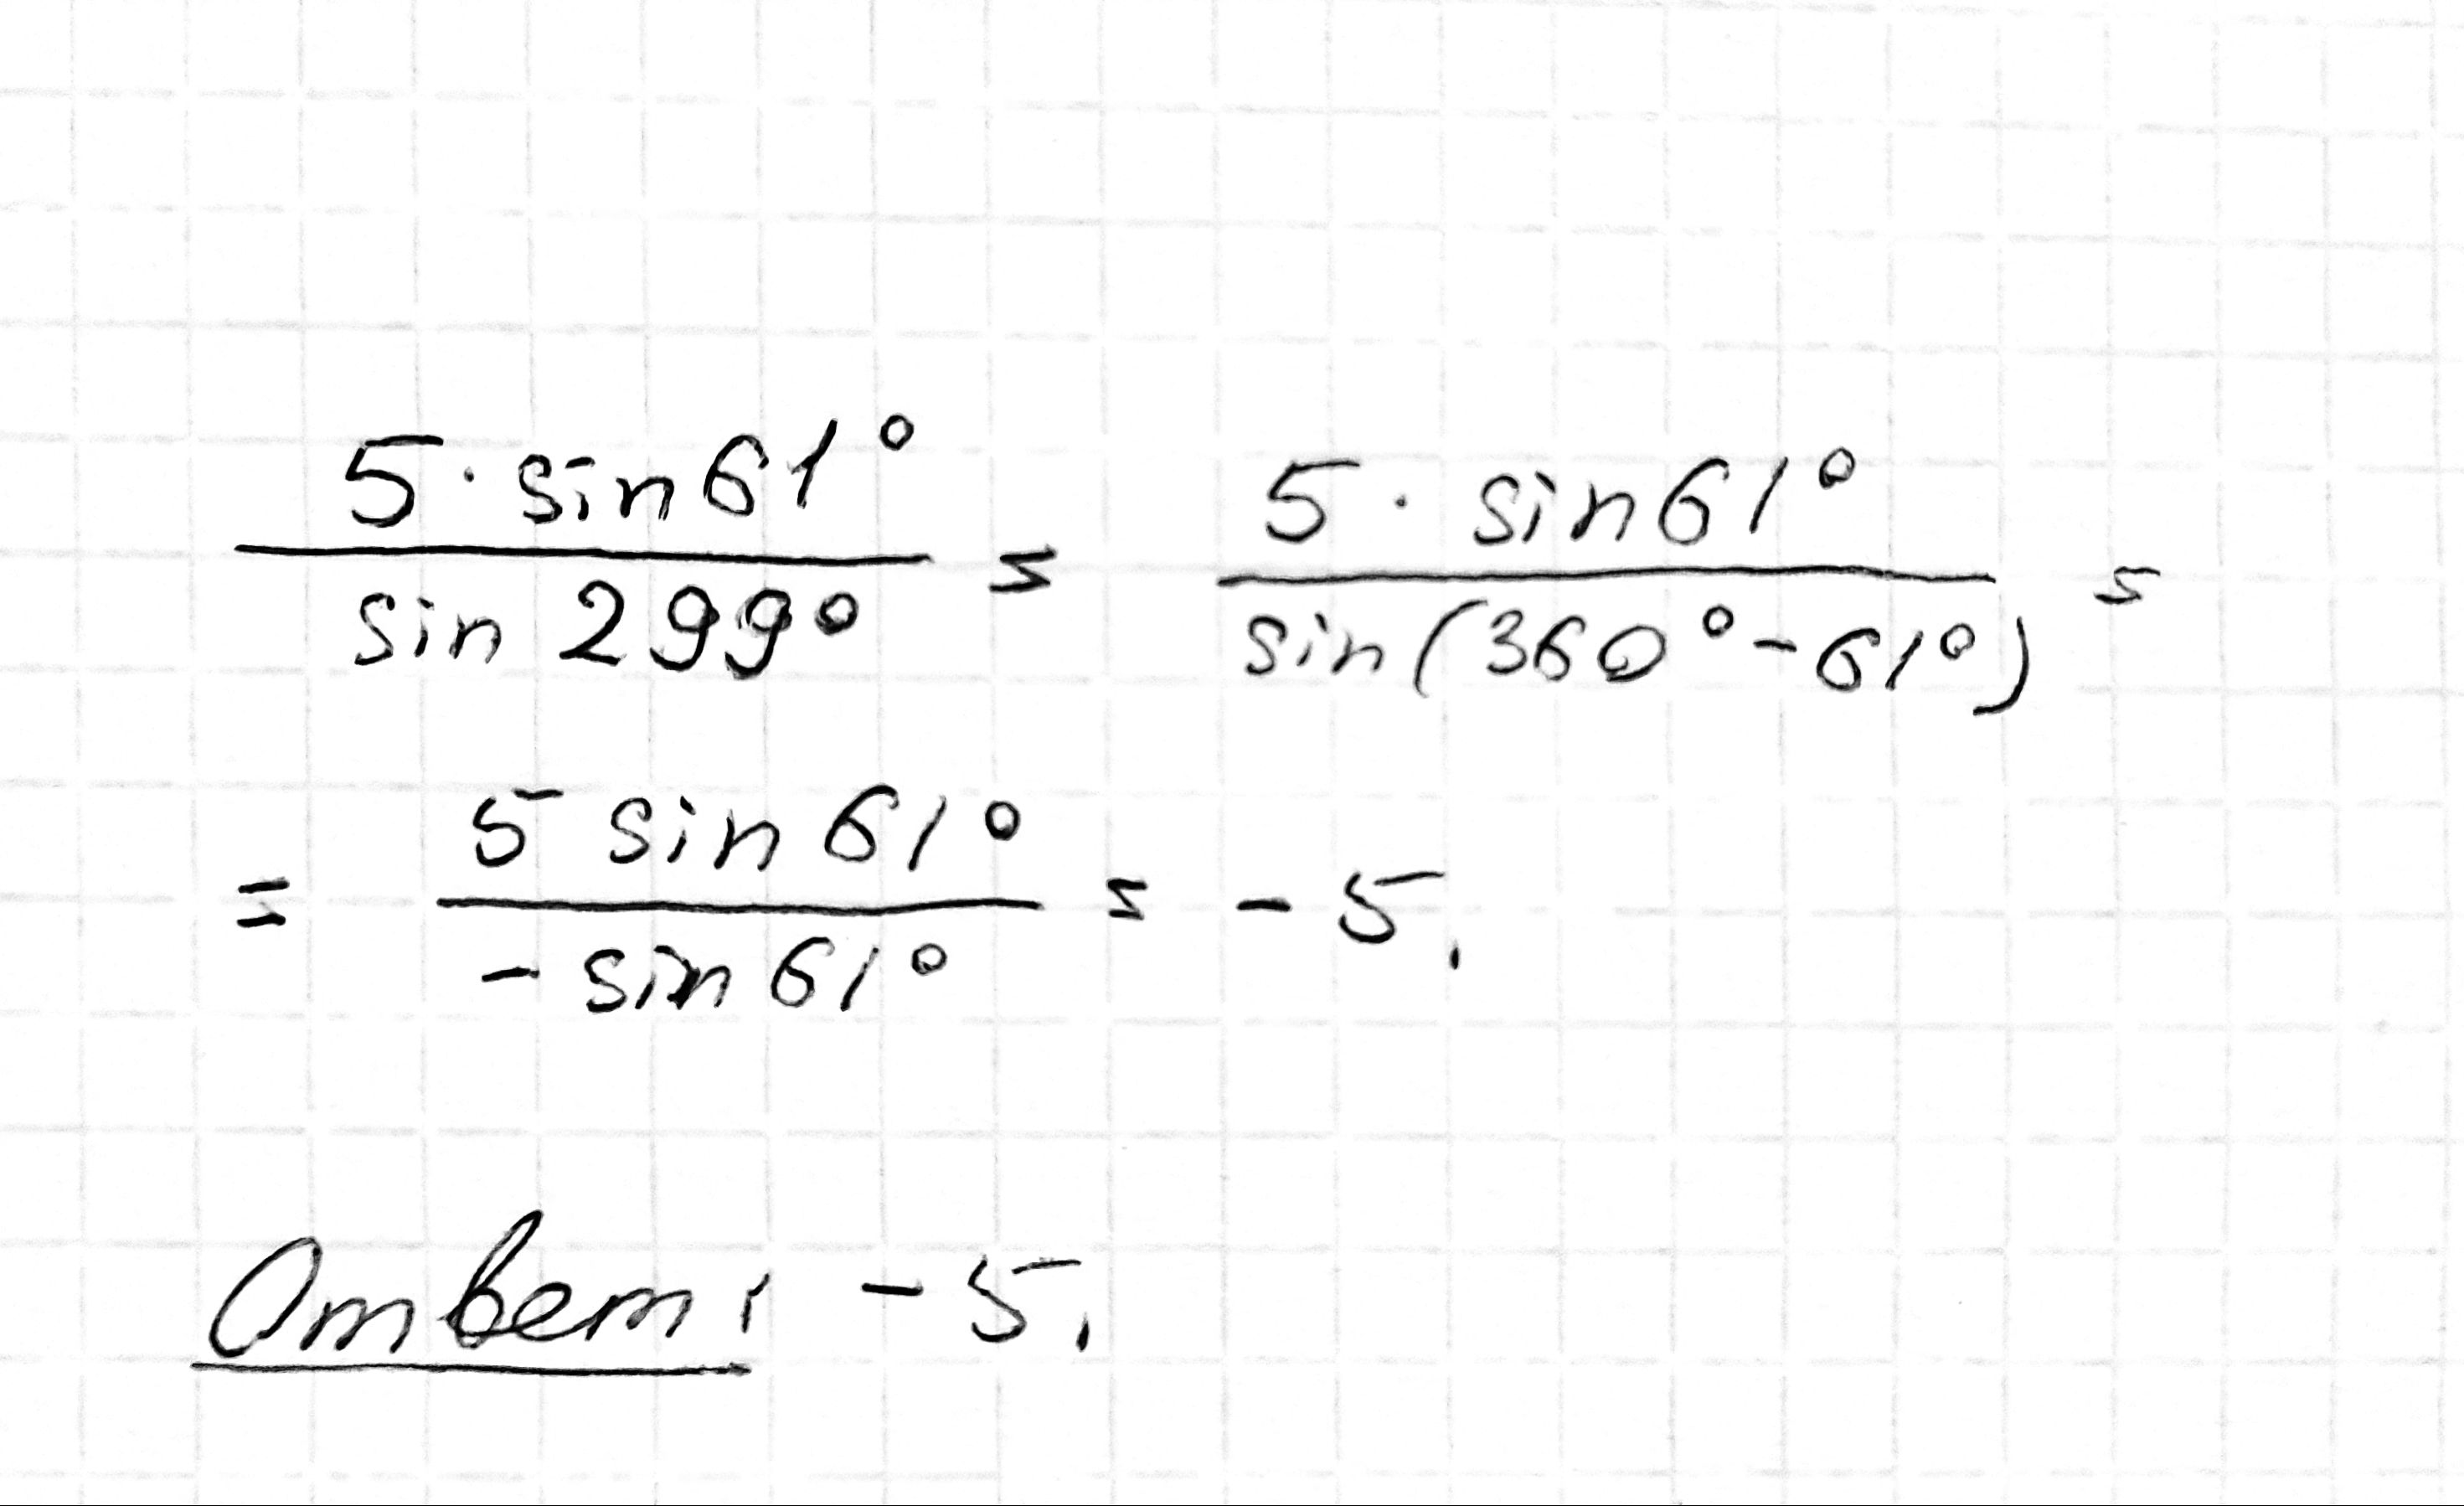 5·sin61° / sin 299° = 5·sin61° / sin(360°-61°) =
= 5 sin 61° / -sin 61° = -5.
Ответ: -5.